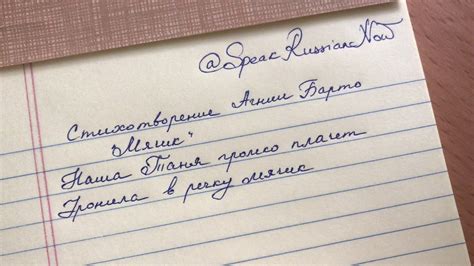 @SpeakRussianNow
Стихотворение Агнии Барто
"Мячик"
Наша Таня громко плачет
Уронила в речку мячик